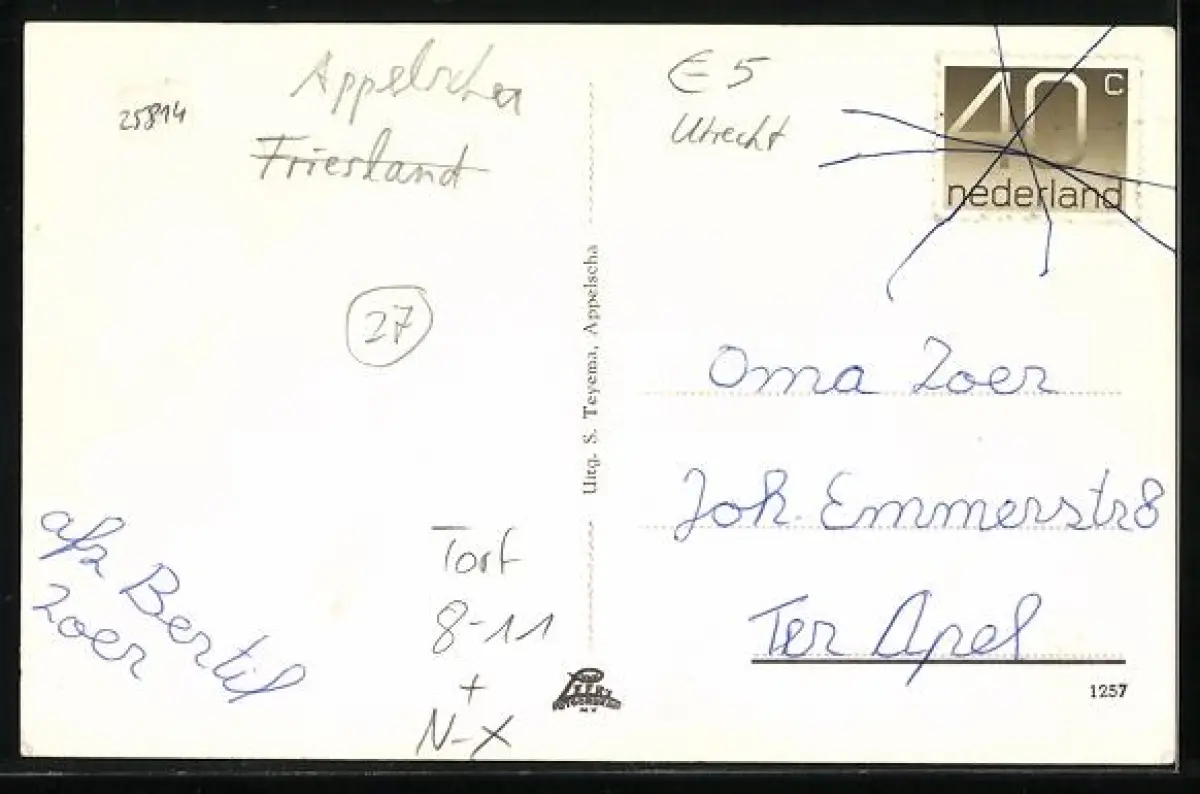 25814
Appelscha
Friesland
27
afz Bertil
Zoer
Torf
8-11
+
N-X
Uitg. S. Teyema, Appelscha
€ 5
Utrecht
40 c
nederland
Oma Zoer
Joh. Emmerstr 8
Ter Apel
1257